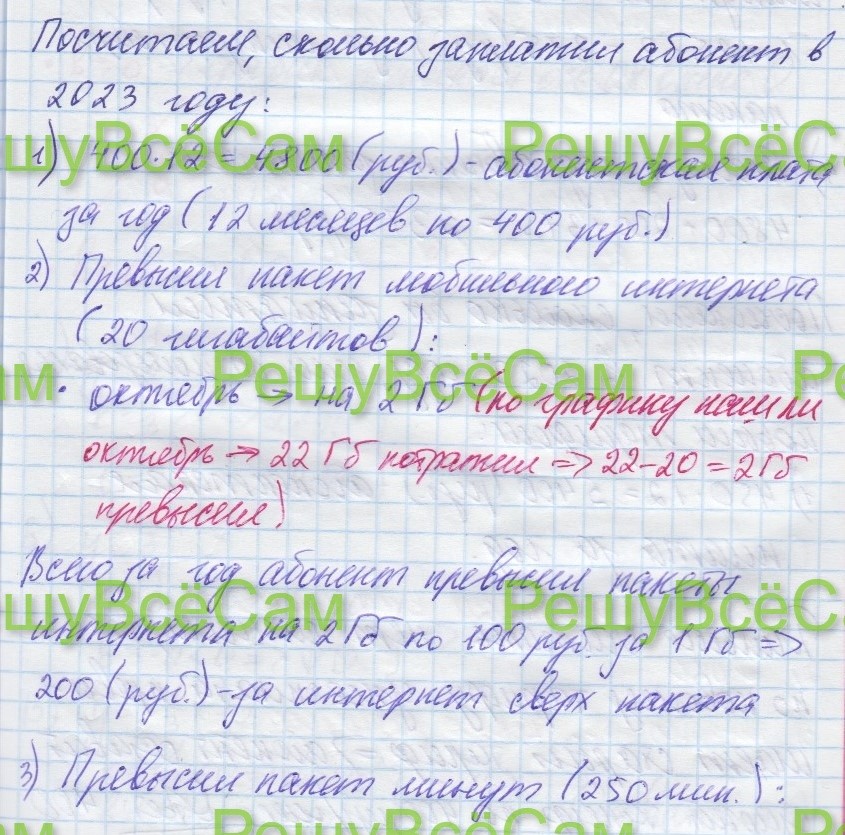 Посчитаем, сколько заплатил абонент в
2023 году:
шуВсёСам РешуВсёСа
1) 400·12 = 4800 (руб.) - абонентская плата
за год (12 месяцев по 400 руб.)
2) Превысил пакет мобильного интернета
(20 гигабайтов):
ам РешуВсёСам Ре
• октябрь → на 2 Гб (по графику нашли
октябрь → 22 Гб потратил => 22-20 = 2Гб
превысил)
Всего за год абонент превысил пакеты
шуВсёСам РешуВсёСа
интернета на 2Гб по 100 руб. за 1 Гб =>
200 (руб.) - за интернет сверх пакета
3) Превысил пакет минут (250 мин.):
РешуВсёСам